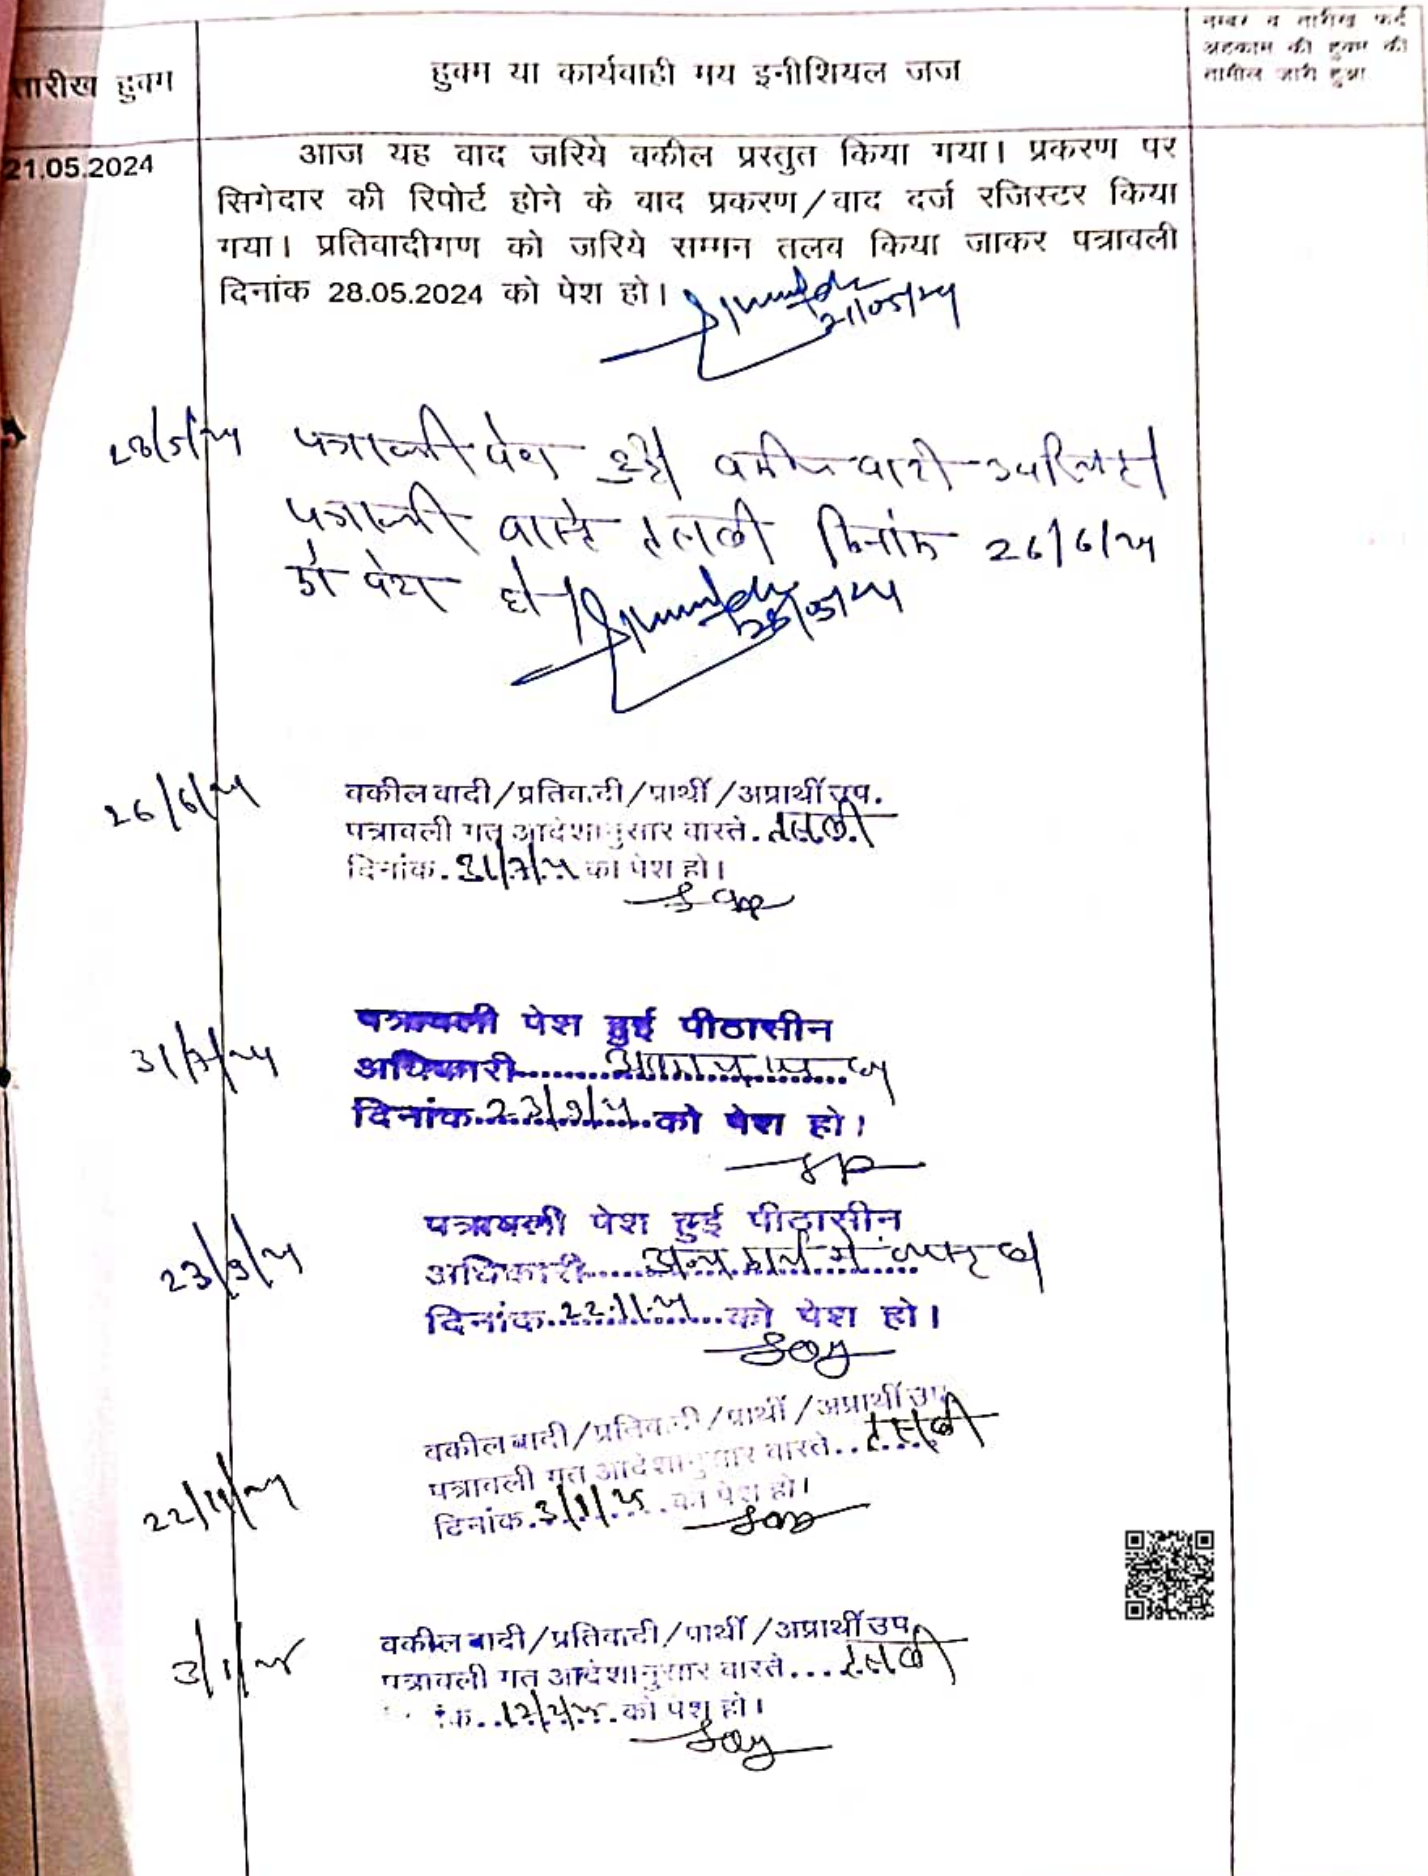 तारीख हुक्म
हुक्म या कार्यवाही मय इनीशियल जज
नम्बर व तारीख फर्द
अहकाम की हुक्म की
तामील जारी हुआ
21.05.2024
आज यह वाद जरिये वकील प्रस्तुत किया गया। प्रकरण पर
सिगेदार की रिपोर्ट होने के बाद प्रकरण/वाद दर्ज रजिस्टर किया
गया। प्रतिवादीगण को जरिये सम्मन तलब किया जाकर पत्रावली
दिनांक 28.05.2024 को पेश हो।
21/05/24
28/5/24 पत्रावली पेश हुई। वकील वादी उपस्थित।
पत्रावली वास्ते तलबी दिनांक 26/6/24
को पेश हो।
28/05/24
26/6/24
वकील वादी/प्रतिवादी/प्रार्थी/अप्रार्थी उप.
पत्रावली गत आदेशानुसार वास्ते. तलबी
दिनांक. 31/7/24 को पेश हो।
31/7/24
पत्रावली पेश हुई पीठासीन
अधिकारी
दिनांक 23/9/24 को पेश हो।
23/9/24
पत्रावली पेश हुई पीठासीन
अधिकारी अन्य कार्य में व्यस्त
दिनांक 22.11.24 को पेश हो।
22/11/24
वकील वादी/प्रतिवादी/प्रार्थी/अप्रार्थी उप
पत्रावली गत आदेशानुसार वास्ते.. तलबी
दिनांक. 3/1/25 को पेश हो।
3/1/25
वकील वादी/प्रतिवादी/प्रार्थी/अप्रार्थी उप.
पत्रावली गत आदेशानुसार वास्ते... तलबी
12/2/25 को पेश हो।